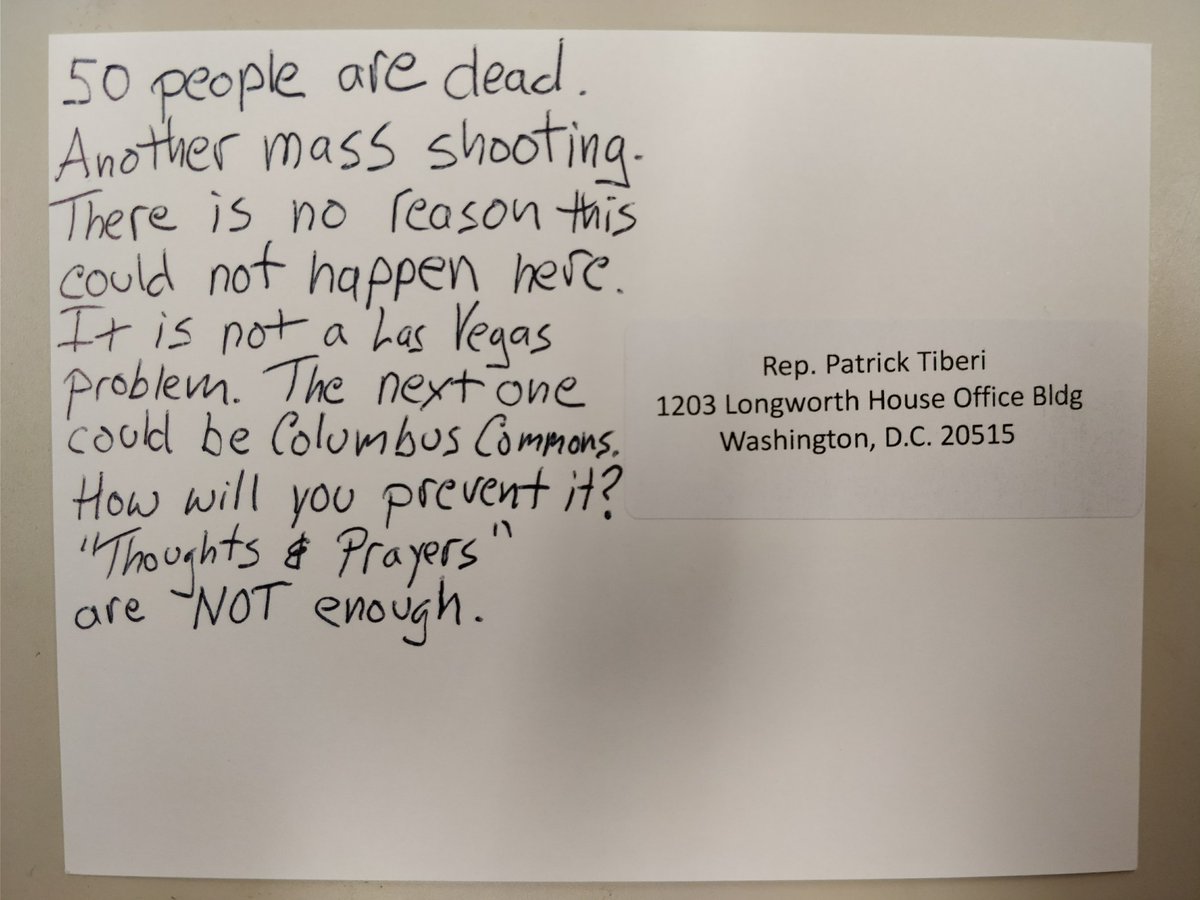 50 people are dead.
Another mass shooting.
There is no reason this
could not happen here.
It is not a Las Vegas
problem. The next one
could be Columbus Commons.
How will you prevent it?
"Thoughts & Prayers"
are NOT enough.
Rep. Patrick Tiberi
1203 Longworth House Office Bldg
Washington, D.C. 20515